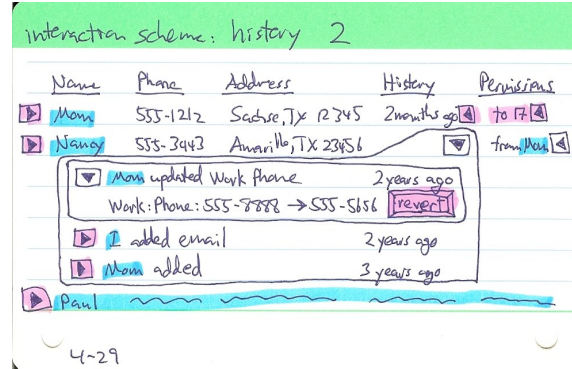 interaction scheme: history 2
Name Phone Address History Permissions
Mom 555-1212 Sachse, TX 12345 2 months ago to 17
Nancy 555-3443 Amarillo, TX 23456 from Mom
Mom updated Work Phone 2 years ago
Work: Phone: 555-8888 → 555-5656 revert
I added email 2 years ago
Mom added 3 years ago
Paul
4-29